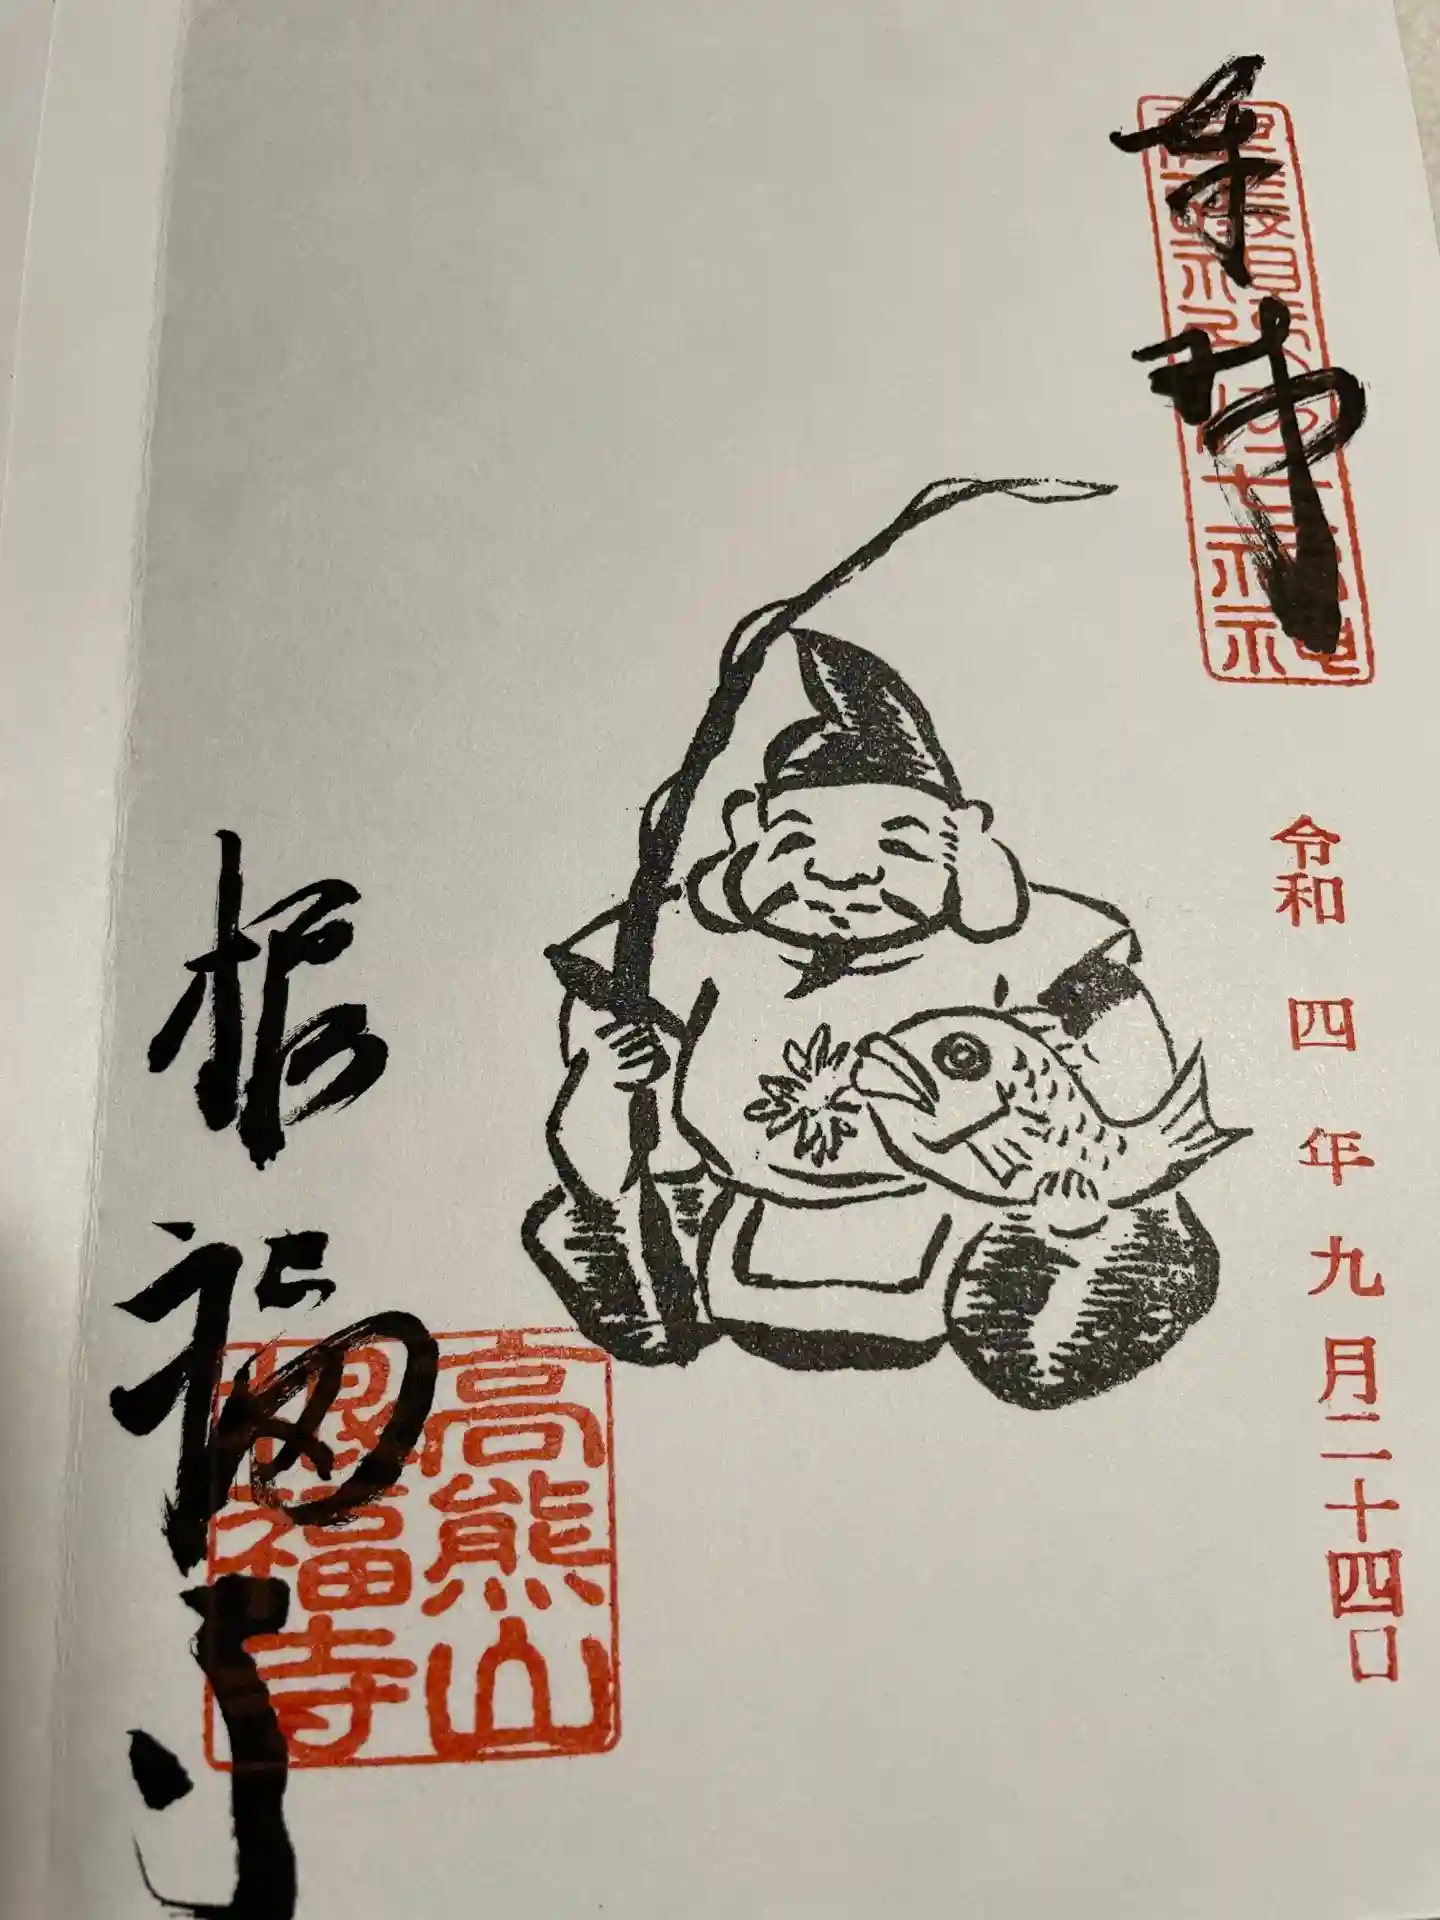 奉拝
令和四年九月二十四日
根福寺
高熊山
根福寺